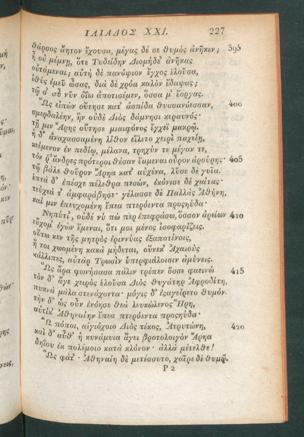 ΙΛΙΑΔΟΣ XXI. 227
θάρσος ἄητον ἔχουσα, μέγας δέ σε θυμὸς ἀνῆκεν; 395
ἦ οὐ μέμνῃ, ὅτε Τυδείδην Διομήδε' ἀνῆκας
οὐτάμεναι; αὐτὴ δὲ πανόψιον ἔγχος ἑλοῦσα,
ἰθὺς ἐμεῦ ὦσας, διὰ δὲ χρόα καλὸν ἔδαψας;
τῷ σ' αὖ νῦν ὀΐω ἀποτισέμεν, ὅσσα μ' ἔοργας.
Ὣς εἰπὼν οὔτησε κατ' ἀσπίδα θυσσανόεσσαν, 400
σμερδαλέην, ἣν οὐδὲ Διὸς δάμνησι κεραυνός·
τῇ μιν Ἄρης οὔτησε μιαιφόνος ἔγχεϊ μακρῷ.
ἡ δ' ἀναχασσαμένη λίθον εἵλετο χειρὶ παχείῃ,
κείμενον ἐν πεδίῳ, μέλανα, τρηχύν τε μέγαν τε,
τόν ῥ' ἄνδρες πρότεροι θέσαν ἔμμεναι οὖρον ἀρούρης· 405
τῷ βάλε θοῦρον Ἄρηα κατ' αὐχένα, λῦσε δὲ γυῖα.
ἑπτὰ δ' ἐπέσχε πέλεθρα πεσὼν, ἐκόνισε δὲ χαίτας·
τεύχεά τ' ἀμφαράβησε· γέλασσε δὲ Παλλὰς Ἀθήνη,
καί μιν ἐπευχομένη ἔπεα πτερόεντα προσηύδα·
Νηπύτι', οὐδέ νύ πώ περ ἐπεφράσω, ὅσσον ἀρείων 410
εὔχομ' ἐγὼν ἔμεναι, ὅτι μοι μένος ἰσοφαρίζεις.
οὕτω κεν τῆς μητρὸς ἐριννύας ἐξαποτίνοις,
ἥ τοι χωομένη κακὰ μήδεται, οὕνεκ' Ἀχαιοὺς
κάλλιπες, αὐτὰρ Τρωσὶν ὑπερφιάλοισιν ἀμύνεις.
Ὣς ἄρα φωνήσασα πάλιν τρέπεν ὄσσε φαεινώ· 415
τὸν δ' ἄγε χειρὸς ἑλοῦσα Διὸς θυγάτηρ Ἀφροδίτη,
πυκνὰ μάλα στενάχοντα· μόγις δ' ἐσαγείρετο θυμόν.
τὴν δ' ὡς οὖν ἐνόησε θεὰ λευκώλενος Ἥρη,
αὐτίκ' Ἀθηναίην ἔπεα πτερόεντα προσηύδα·
Ὢ πόποι, αἰγιόχοιο Διὸς τέκος, Ἀτρυτώνη, 420
καὶ δ' αὖθ' ἡ κυνάμυια ἄγει βροτολοιγὸν Ἄρηα
δηΐου ἐκ πολέμοιο κατὰ κλόνον· ἀλλὰ μέτελθε!
Ὣς φάτ'· Ἀθηναίη δὲ μετέσσυτο, χαῖρε δὲ θυμῷ.
P 2